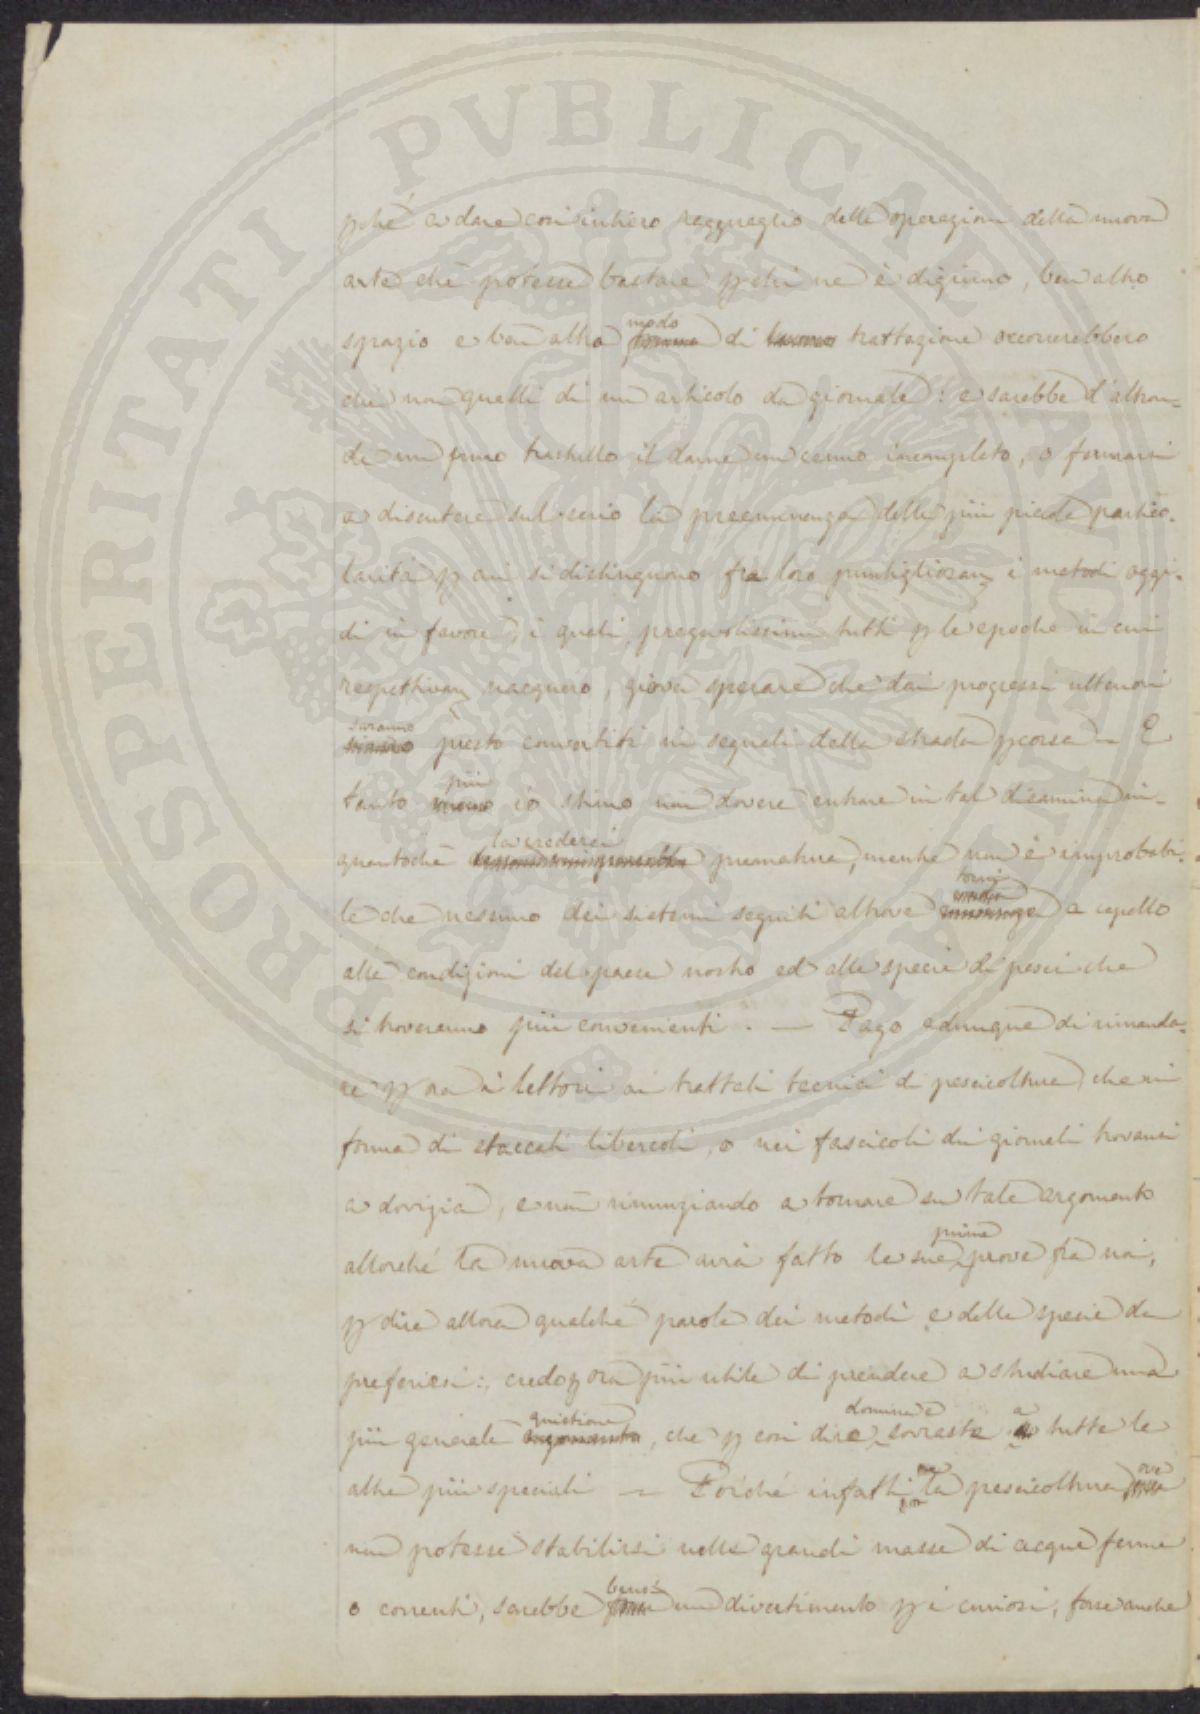 PROSPERITATI PVBLICAE AVGENDAE
pché a dare così intiero ragguaglio delle operazioni della nuova
arte che potesse bastare p chi ne è digiuno, ben altro
spazio e ben altro modo di trattazione occorrerebbero
che non quelli di un articolo da giornale: e sarebbe d'altron=
de un trastullo il darne un cenno incompleto, o fermarsi
a discutere sul serio la preeminenza delle più piccole partico=
larità p cui si distinguono fra loro i metodi oggi=
dì in favore, i quali, pregevolissimi tutti p le epoche in cui
nacquero, giova sperare che dai progressi ulteriori
saranno presto convertiti in segnali della strada pcorsa — E
tanto più io stimo non dovere entrare in tal disamina in=
quantoché la crederei prematura, mentre non è improbabi=
le che nessuno dei sistemi seguiti altrove torni a capello
alle condizioni del paese nostro ed alle specie di pesci che
si troveranno più convenienti. — Pago adunque di rimanda=
re p ora i lettori ai trattati tecnici di pescicoltura, che in
forma di staccati libercoli, o nei fascicoli dei giornali trovansi
a dovizia, e non rinunziando a tornare su tale argomento
allorché la nuova arte avrà fatto le sue prime prove fra noi,
p dire allora qualche parola dei metodi e delle specie da
preferirsi:, credo p ora più utile di prendere a studiare una
più generale quistione, che p così dire domina e sovrasta a tutte le
altre più speciali — Poiché infatti la pescicoltura ove
non potesse stabilirsi nelle grandi masse di acque ferme
o correnti, sarebbe bensì un divertimento p i curiosi, forse anche